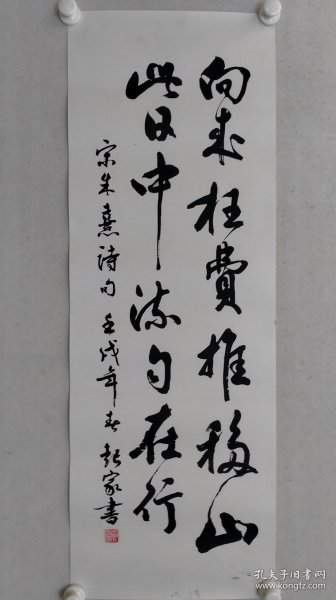 向来枉費推移山
此日中流自在行
宋朱熹詩句 壬戌年春 起家書
孔夫子旧书网